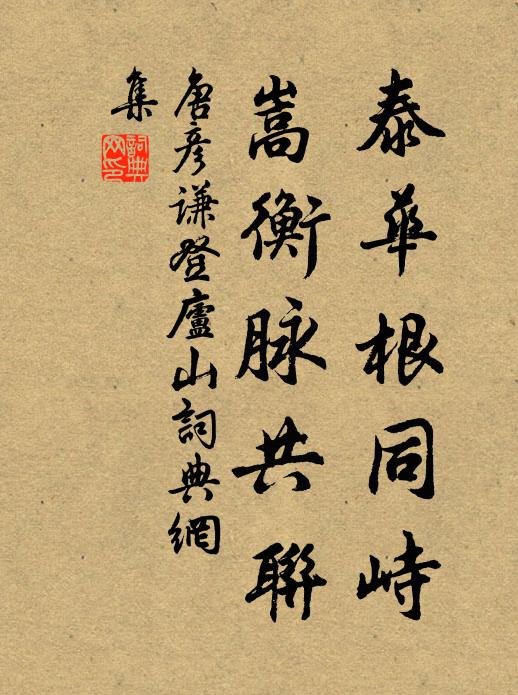 泰華根同峙
嵩衡脉共聯
唐彥谦登廬山詞典網
集
詞典网印